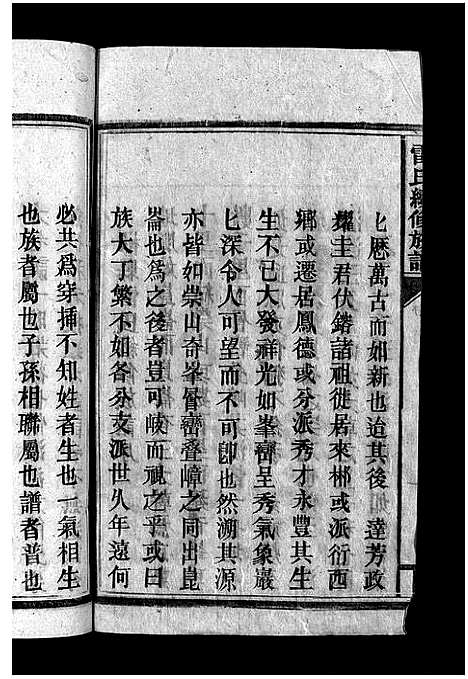 雷氏續修族譜
匕厯萬古而如新也迨其後如達芳政
耀圭君伏鐈諸祖徙居來郴或派衍西
鄉或遷居鳳德或分派秀才永豐其生
生不已大發祥光如峯巒呈秀氣象巖
匕深令人可望而不可即也然溯其源
亦皆如崇山奇峯層巒叠嶂之同出崑
崙也為之後者豈可岐而視之乎或曰
族大丁繁不如各分支派世久年遠何
必共為穿揷不知姓者生也一氣相生
也族者屬也子孫相聯屬也譜者普也